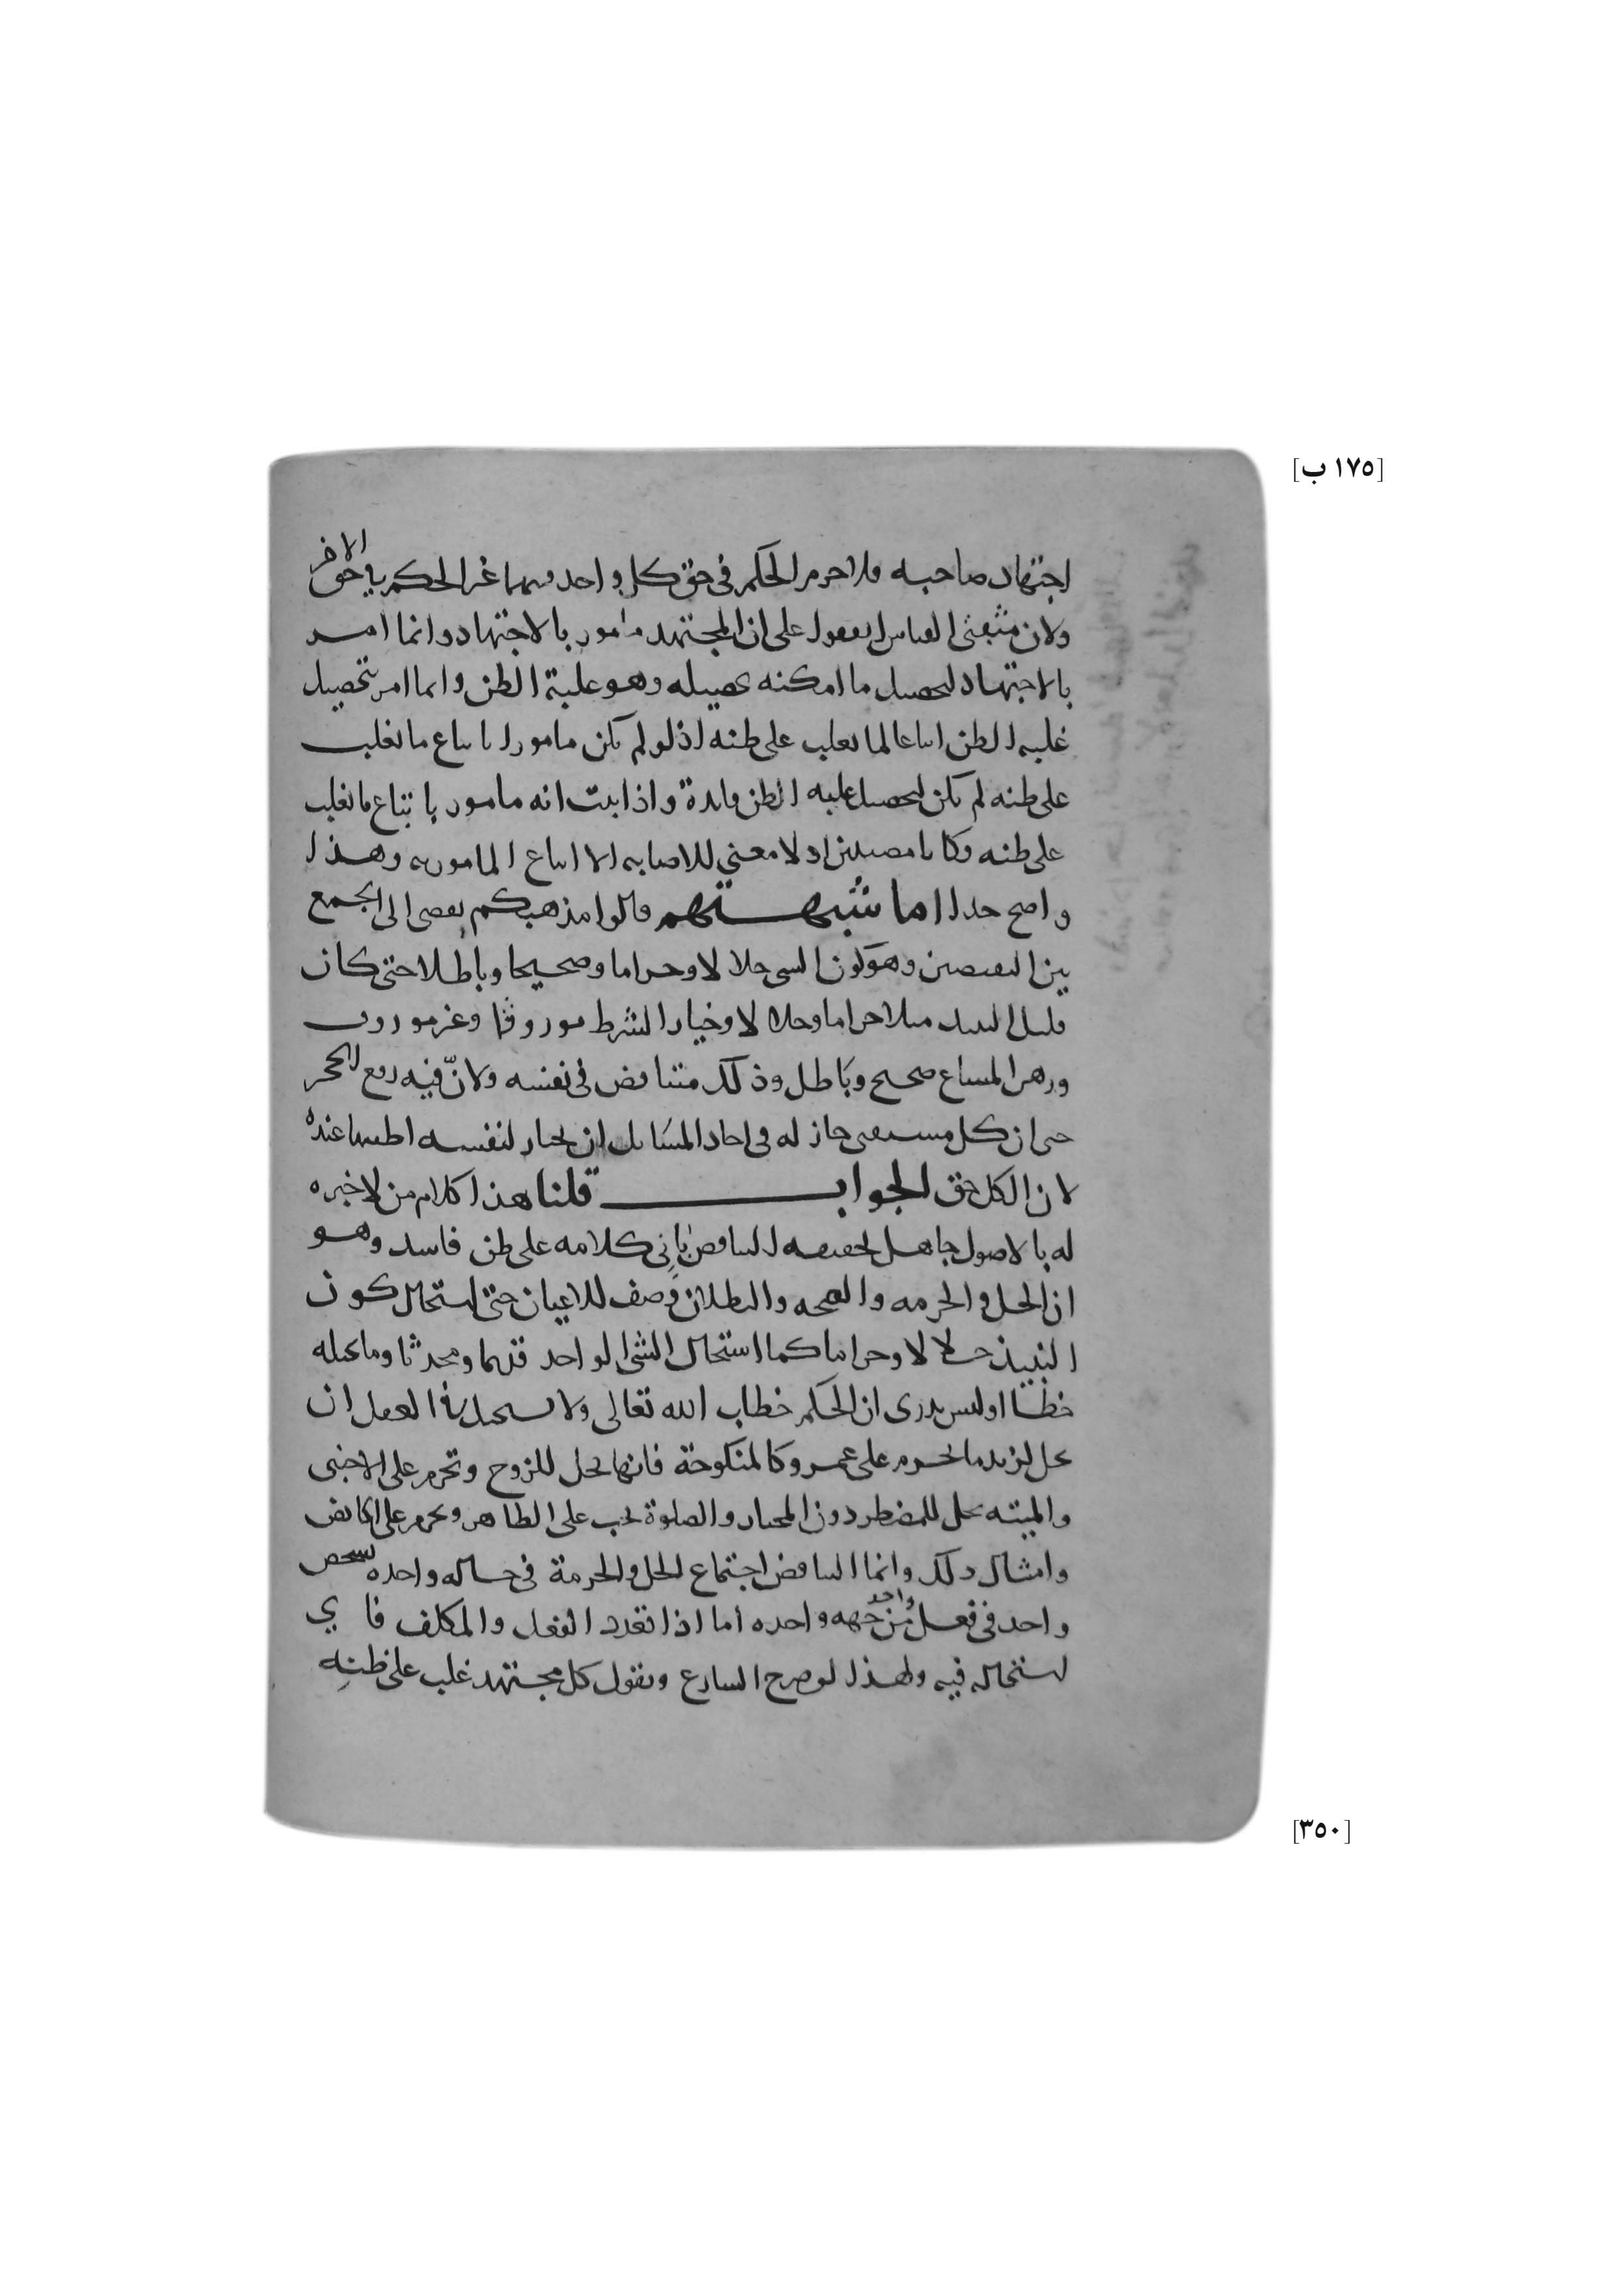 [١٧٥ ب]
اجتهاد صاحبه فلا جرم الحكم في حق كل واحد منهما غير الحكم في حق الاخر
ولان مثبتي القياس اتفقوا على ان المجتهد مامور بالاجتهاد وانما امر
بالاجتهاد لتحصيل ما امكنه تحصيله وهو غلبة الظن وانما امر بتحصيل
غلبه الظن اتباعا لما يغلب على ظنه اذ لو لم يكن مامورا باتباع ما يغلب
على ظنه لم يكن لتحصيل غلبه الظن فايدة واذا ثبت انه مامور باتباع ما يغلب
على ظنه وكانا مصيبين اذ لا معنى للاصابه الا اتباع المامور به وهذا
واضح جدا اما شبهتهم قالوا مذهبكم يفضي الى الجمع
بين النقيضين وهو كون الشي حلالا وحراما وصحيحا وباطلا حتى كان
قليل النبيذ مثلا حراما وحلالا وخيار الشرط موروثا وغير موروث
ورهن المشاع صحيح وباطل وذلك متناقض في نفسه ولان فيه رفع الحجر
حتى ان كل مستفتي جاز له في احاد المسايل ان يختار لنفسه اطيبها عنده
لان الكل حق الجواب قلنا هذا كلام من لا خبره
له بالاصول جاهل بحقيقه التناقض باني كلامه على ظن فاسد وهو
ان الحل والحرمه والصحه والبطلان وصف للاعيان حتى استحال كون
النبيذ حلالا وحراما كما استحال الشي الواحد قديما ومحدثا وما تخيله
خطا اوليس يدري ان الحكم خطاب الله تعالى ولا يستحيل في العقل ان
يحل لزيد ما يحرم على عمرو كالمنكوحة فانها تحل للزوج وتحرم على الاجنبي
والميته تحل للمضطر دون المختار والصلوة تجب على الطاهر وتحرم على الحايض
وامثال ذلك وانما التناقض اجتماع الحل والحرمة في حاله واحده لشخص
واحد في فعل واحد من جهه واحده اما اذا تعدد الفعل والمكلف فاي
استحاله فيه ولهذا لو صرح الشارع ويقول كل مجتهد غلب على ظنه
[٣٥٠]